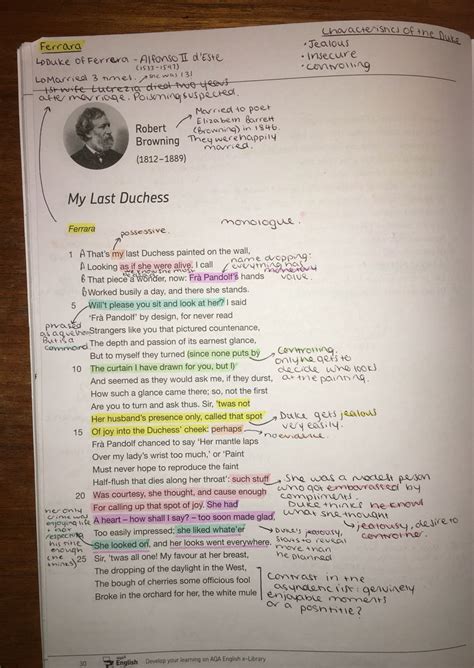 Ferrara
↳Duke of Ferrera - Alfonso II d'Este
(1533-1597)
↳Married 3 times. she was 13!
1st wife Lucrezia died two years
after marriage. Poisoning suspected.
Characteristics of the Duke
• Jealous
• Insecure
• Controlling
Robert
Browning
(1812–1889)
Married to poet
Elizabeth Barrett
(Browning) in 1846.
They were happily
married.
My Last Duchess
Ferrara
possessive.
monologue.
1 A That's my last Duchess painted on the wall,
A Looking as if she were alive. I call
B That piece a wonder, now: Frà Pandolf's hands
B Worked busily a day, and there she stands.
name dropping:
everything has
monetary
value.
5 Will't please you sit and look at her? I said
'Frà Pandolf' by design, for never read
Strangers like you that pictured countenance,
The depth and passion of its earnest glance,
But to myself they turned (since none puts by
10 The curtain I have drawn for you, but I)
And seemed as they would ask me, if they durst,
How such a glance came there; so, not the first
Are you to turn and ask thus. Sir, 'twas not
Her husband's presence only, called that spot
15 Of joy into the Duchess' cheek: perhaps
Frà Pandolf chanced to say 'Her mantle laps
Over my lady's wrist too much,' or 'Paint
Must never hope to reproduce the faint
Half-flush that dies along her throat': such stuff
20 Was courtesy, she thought, and cause enough
For calling up that spot of joy. She had
A heart – how shall I say? – too soon made glad,
Too easily impressed; she liked whate'er
She looked on, and her looks went everywhere.
25 Sir, 'twas all one! My favour at her breast,
The dropping of the daylight in the West,
The bough of cherries some officious fool
Broke in the orchard for her, the white mule
phrased
as a question
But is a
command
controlling.
only he gets to
decide who looks
at the painting.
Duke gets jealous
very easily.
no evidence.
She was a modest person
who got embarrassed by
compliments.
Duke thinks he know
what she thought
jealousy, desire to
control her.
her only
crime was
enjoying life
+ not
respecting
his title
enough
(he
thinks)
Duke's jealousy,
starts to reveal
more than
he planned
Contrast in the
asyndetic list: genuinely
enjoyable moments
or a posh title?
30
English
Develop your learning on AQA English e-Library